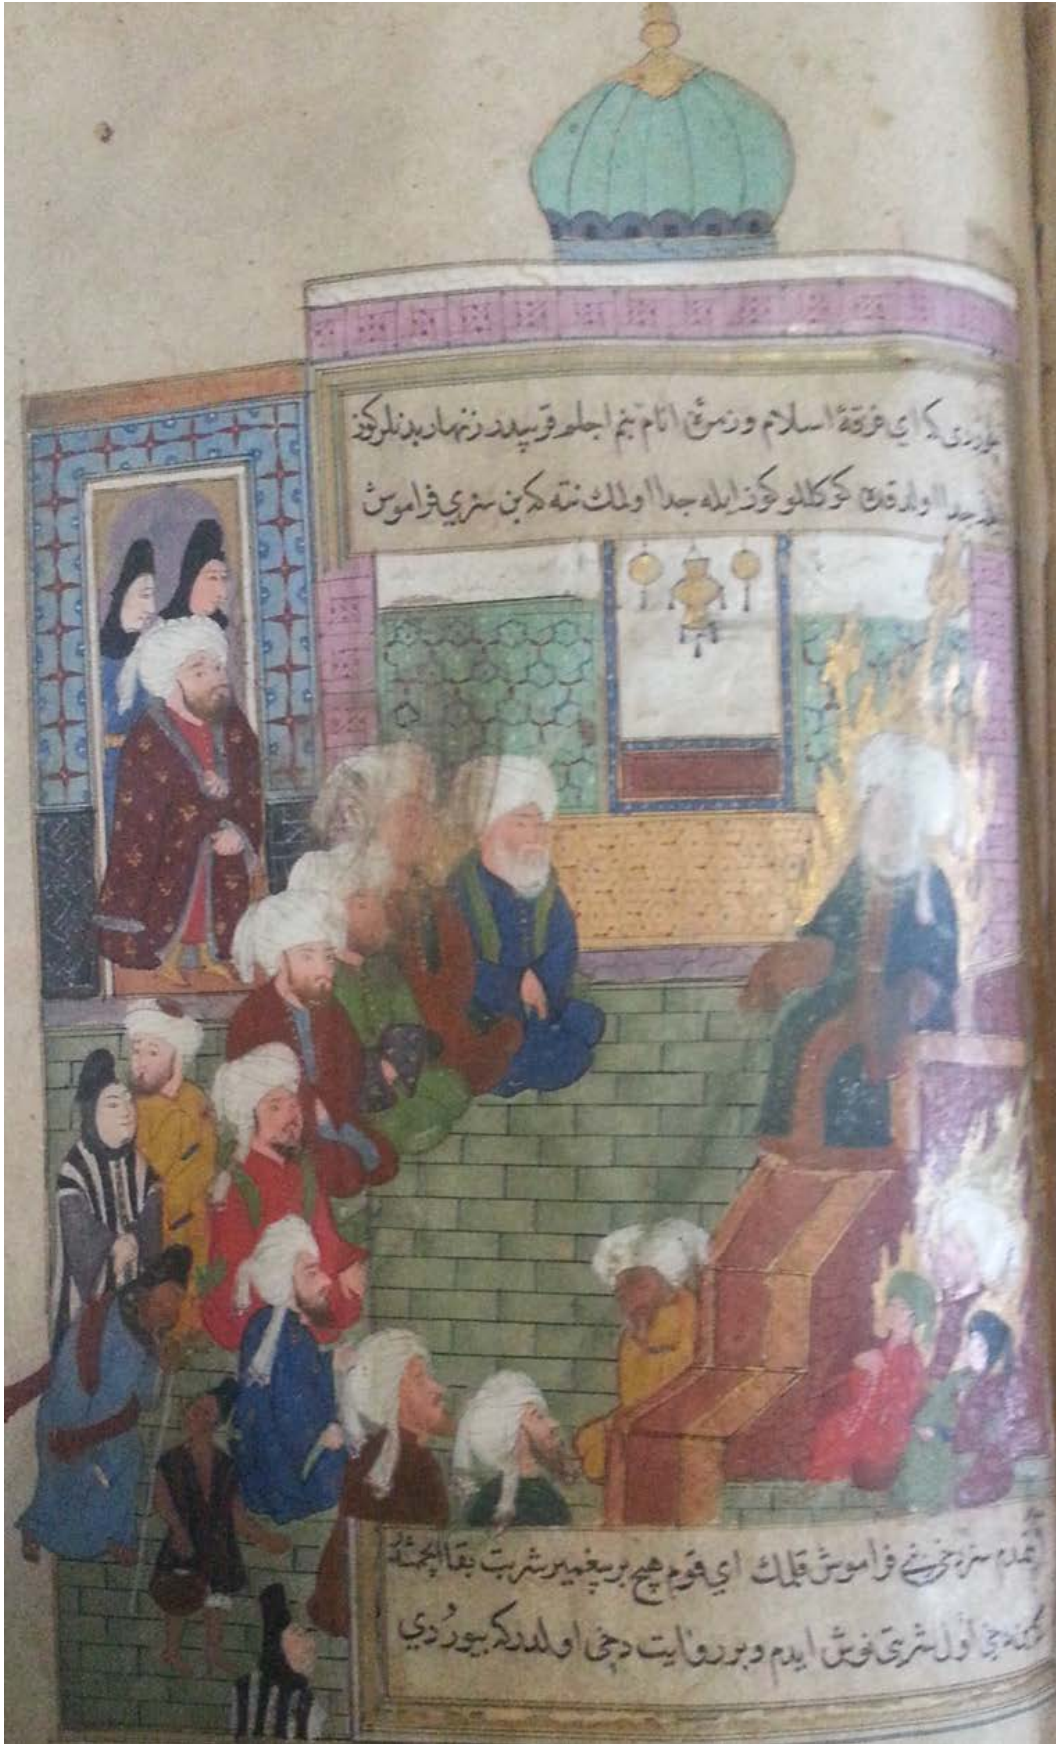 كه اي فرقۀ اسلام وزمرۀ انام بنم اجلم قريبدر زنهار بدنلركوز
جدا اولدقدن كوكللركوز ايله جدا اولمك نته كه بن سزي فراموش
اتمدم سز دخي بني فراموش قلمك اي قوم هيچ بر پيغمبر شربت بقا ايچمشدر
بن دخي اول شربتي نوش ايدم وبر روايت دخي اولدركه بيوردي